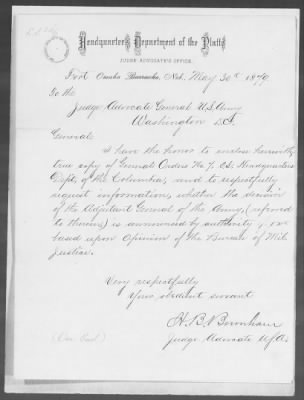 Headquarters Department of the Platte
JUDGE ADVOCATE'S OFFICE,
Fort Omaha Barracks, Neb. May 30th 1879
To the
Judge Advocate General U.S. Army
Washington D.C.
General:
I have the honor to enclose herewith
true copy of General Orders No. 7. CS. Headquarters
Dept. of the Columbia, and to respectfully
request information, whether the decision
of the Adjutant General of the Army, (referred
to therein) is announced by authority & was
based upon Opinion of the Bureau of Mil.
Justice.
Very respectfully
Your obedient servant
H. B. Burnham
Judge Advocate U.S.A.